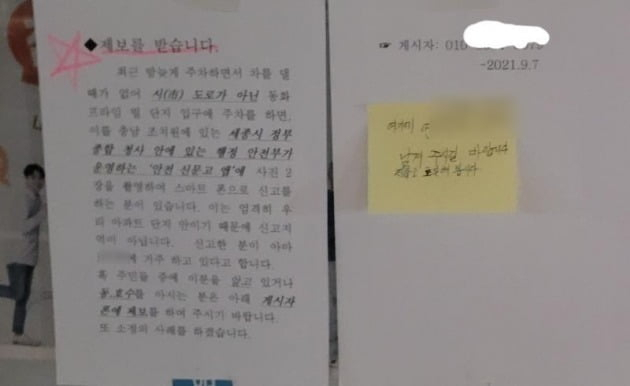 ◆제보를 받습니다.
최근 밤늦게 주차하면서 차를 댈
때가 없어 시(市) 도로가 아닌 동화
프라임 빌 단지 입구에 주차를 하면,
이를 충남 조치원에 있는 세종시 정부
종합 청사 안에 있는 행정 안전부가
운영하는 '안전 신문고 앱'에 사진 2
장을 촬영하여 스마트 폰으로 신고를
하는 분이 있습니다. 이는 엄격히 우
리 아파트 단지 안이기 때문에 신고지
역이 아닙니다. 신고한 분이 아마
에 거주 하고 있다고 합니다.
혹 주민들 중에 이분을 알고 있거나
동,호수를 아시는 분은 아래 게시자
폰에 제보를 하여 주시기 바랍니다.
또 소정의 사례를 하겠습니다.
☞ 게시자: 010
-2021.9.7
남겨 주시길 바랍니다